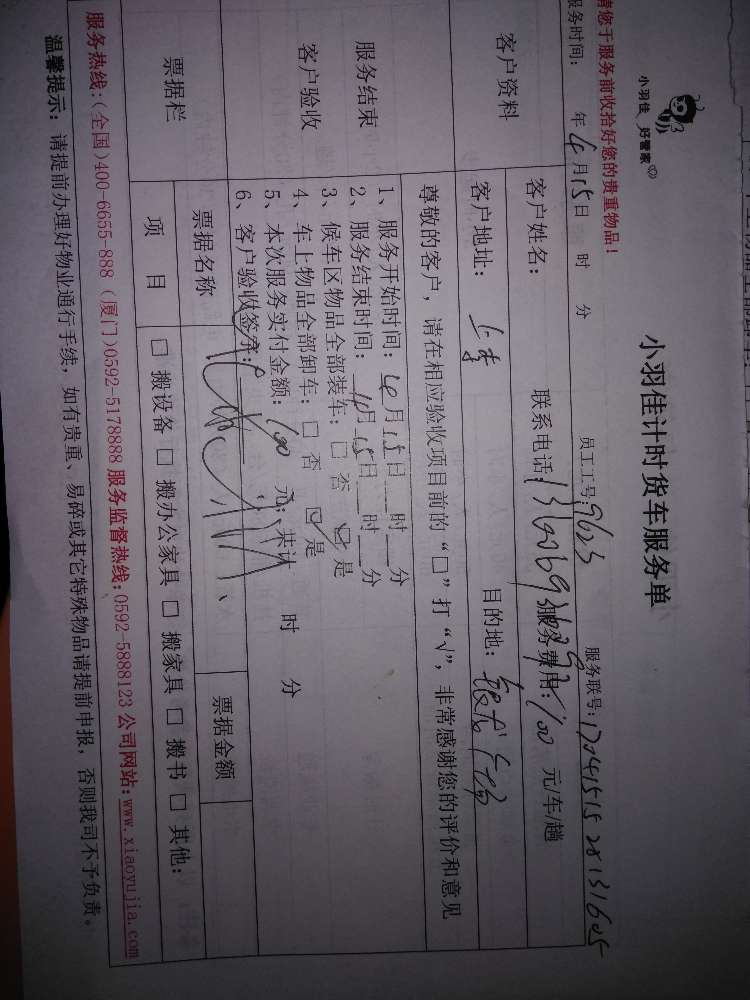 小羽佳 好管家
小羽佳计时货车服务单
请您于服务前收拾好您的贵重物品!
员工工号:9623
服务联号:
服务时间: 年 4月15日 时 分
客户资料
客户姓名:
联系电话:
服务费用:100 元/车/趟
客户地址:
目的地:
服务结束
客户验收
尊敬的客户,请在相应验收项目前的“□”打“√”,非常感谢您的评价和意见
1、服务开始时间:4月15日 时 分
2、服务结束时间:4月15日 时 分
3、候车区物品全部装车:□ 否 ☑ 是
4、车上物品全部卸车:□ 否 ☑ 是
5、本次服务实付金额:100 元;共计 时 分
6、客户验收签字:
票据栏
票据名称
票据金额
项 目
□ 搬设备 □ 搬办公家具 □ 搬家具 □ 搬书 □ 其他:
服务热线:(全国)400-6655-888 (厦门)0592-5178888 服务监督热线:0592-5888123 公司网站:www.xiaoyujia.com
温馨提示:请提前办理好物业通行手续,如有贵重、易碎或其它特殊物品请提前申报,否则我司不予负责。